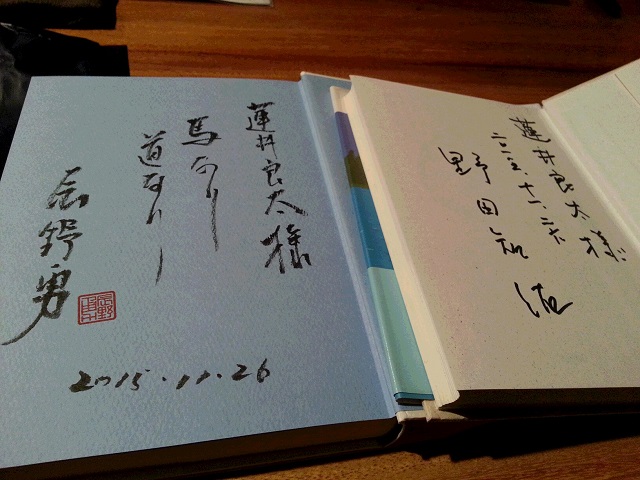 蓮井良太様
馬なり
道なり
辰野勇
2015.11.26
蓮井良太様
二〇一五、十一、二六
野田知佑